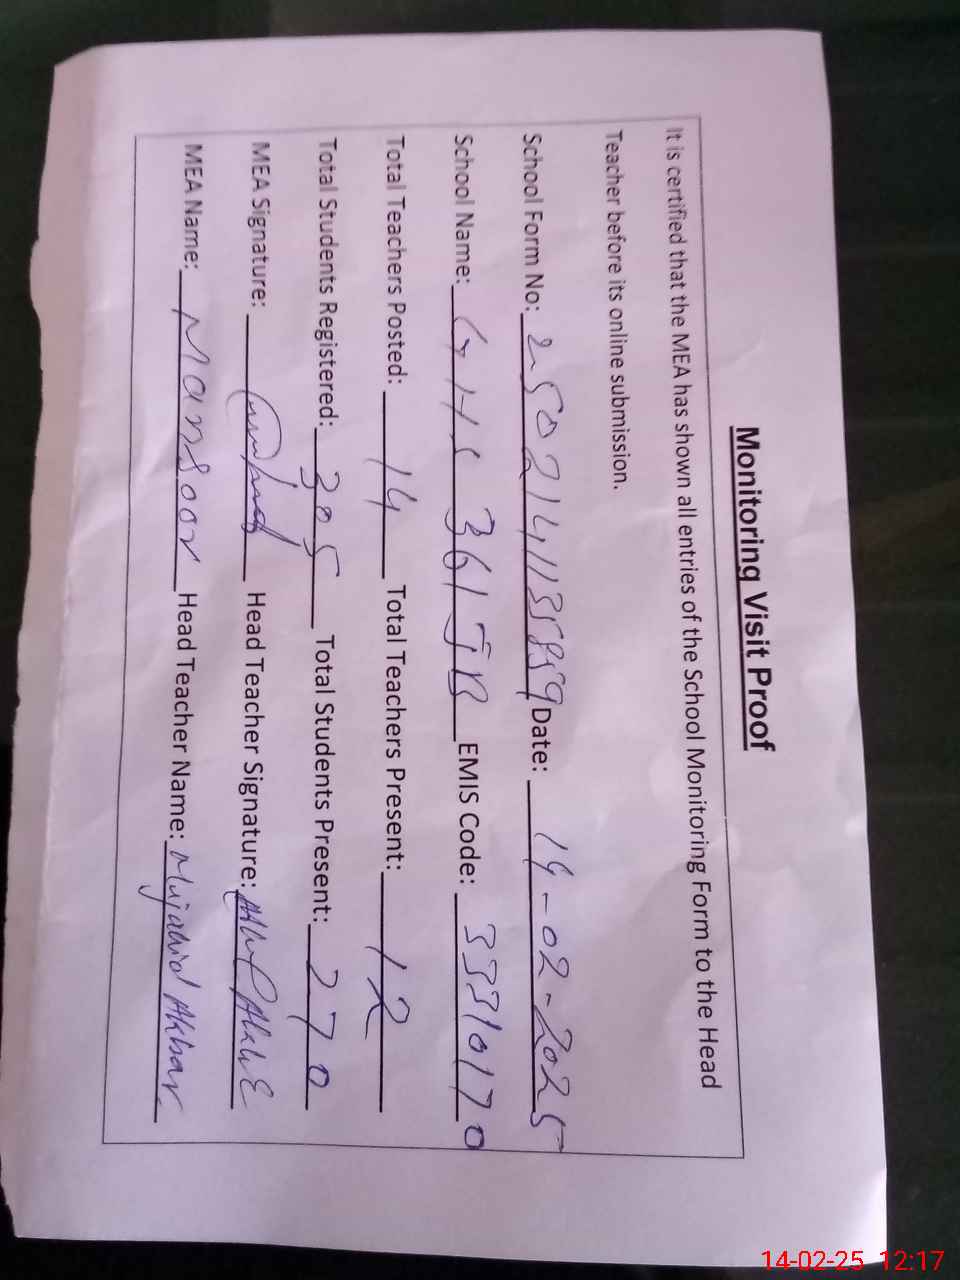 Monitoring Visit Proof
It is certified that the MEA has shown all entries of the School Monitoring Form to the Head
Teacher before its online submission.
School Form No: 2502141135859 Date: 14-02-2025
School Name: GHS 361 JB EMIS Code: 33310170
Total Teachers Posted: 14 Total Teachers Present: 12
Total Students Registered: 305 Total Students Present: 270
MEA Signature: Head Teacher Signature:
MEA Name: Mansoor Head Teacher Name: Mujahid Akbar
14-02-25 12:17